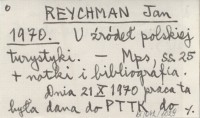 REYCHMAN Jan
1970. U źródeł polskiej
turystyki. — Mps, ss. 25
+ notki i bibliografia.
Dnia 21 X 1970 praca ta
była dana do PTTK, do